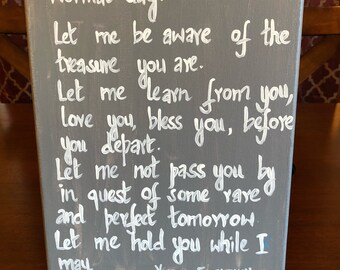 Let me be aware of the
treasure you are.
Let me learn from you,
love you, bless you, before
you depart.
Let me not pass you by
in quest of some rare
and perfect tomorrow.
Let me hold you while I
may